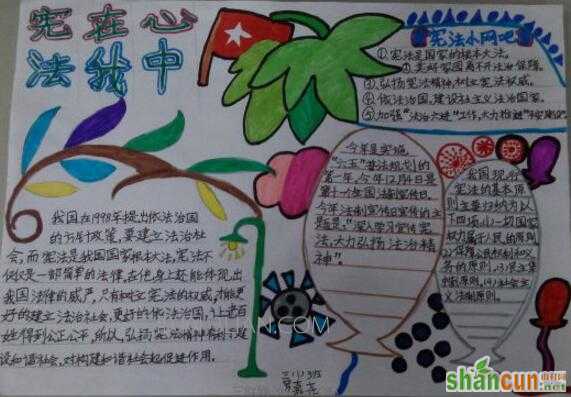 宪在心
法我中
宪法小网吧
①、宪法是国家的根本大法。
②、美好家园离不开法治保障。
③、弘扬宪法精神,树立宪法权威。
④、依法治国,建设社主义法治国家。
⑤、加强"法治六进"工作,大力推进
今年是实施
"六五"普法规划的
第一年,今年12月4日是
第十一个全国法制宣传日,
今年法制宣传日宣传的主
题是:"深入学习宣传宪
法,大力弘扬法治精
神"。
我国现行
宪法的基本原
则主要归纳为以
下四项:(1)一切国家
权力属于人民的原则
(2)保障公民权利和义
务的原则。(3)民主集
中制原则。(4)社会主
义法制原则。
我国在1998年提出依法治国
的方针政策,要建立法治社
会,而宪法是我国国家根本大法,宪法不
仅仅是一部简单的法律,在他身上还能体现出
我国法律的威严,只有树立宪法的权威,才能更
好的建立法治社会,更好的依法治国,让老百
姓得到公正公平。所以,弘扬宪法精神有利于建
设和谐社会,对构建和谐社会起促进作用。
三(1)班
shancun
.net